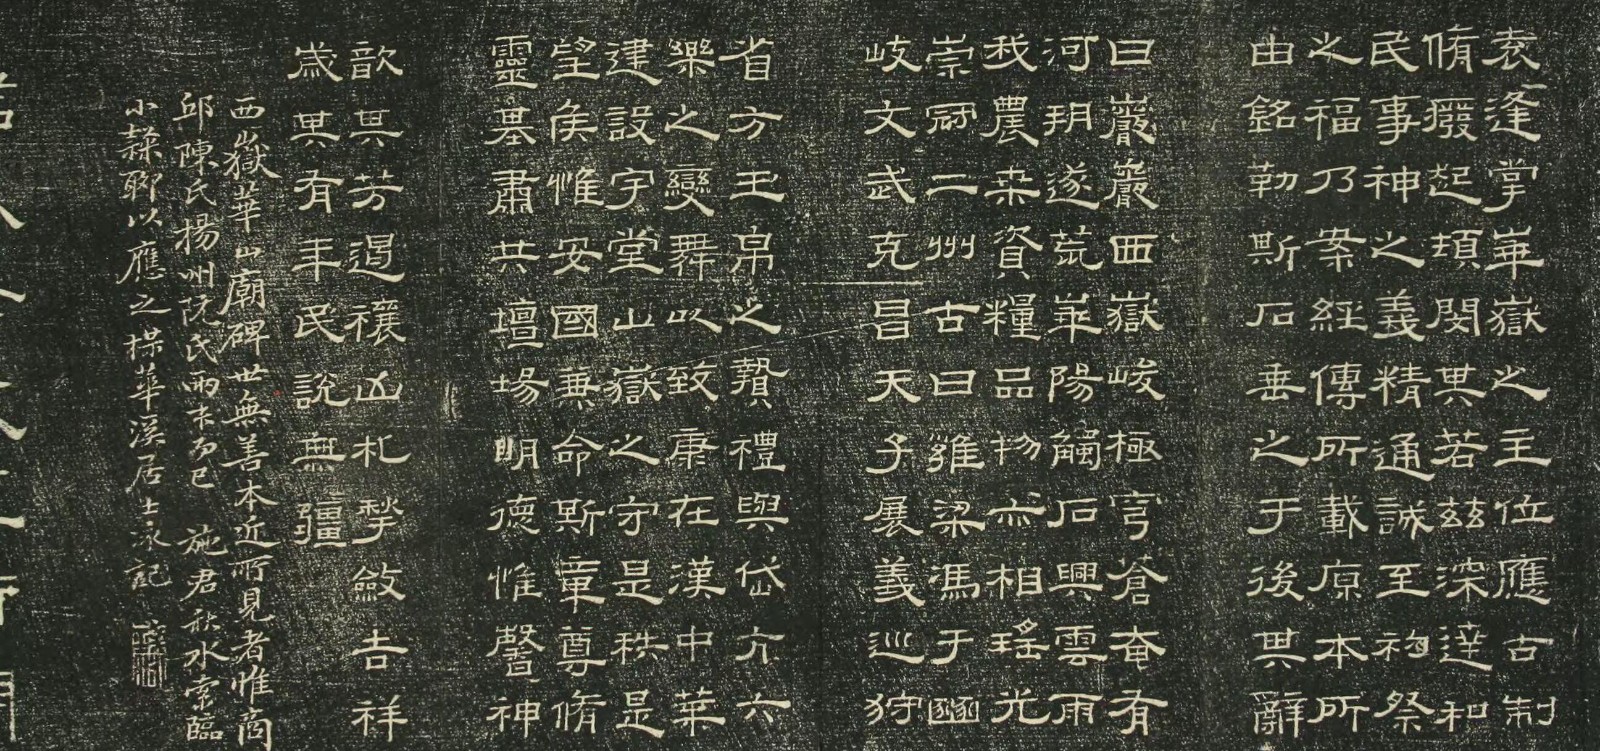 袁逢掌崋嶽之主位應古制
脩癈起頓閔其若茲深達和
民事神之義精通誠至礿祭
之福乃案經傳所載原本所
由銘勒斯石垂之于後其辭
曰巖巖西嶽峻極穹蒼奄有
河朔遂荒崋陽觸石興雲雨
我農桑資糧品物亦相瑤光
崇冠二州古曰雍梁馮于豳
岐文武克昌天子展義巡狩
省方玉帛之贄禮與岱亢六
樂之變舞以致康在漢中葉
建設宇堂山嶽之守是秩是
望侯惟安國兼命斯章尊脩
靈基肅共壇場明德惟馨神
歆其芳遏禳凶札揫斂吉祥
歲其有年民說無疆
西嶽華山廟碑世無善本近所見者惟商
邱陳氏揚州阮氏兩本而已 施君秋水索臨
小隸聊以應之 楳華溪居士泳記